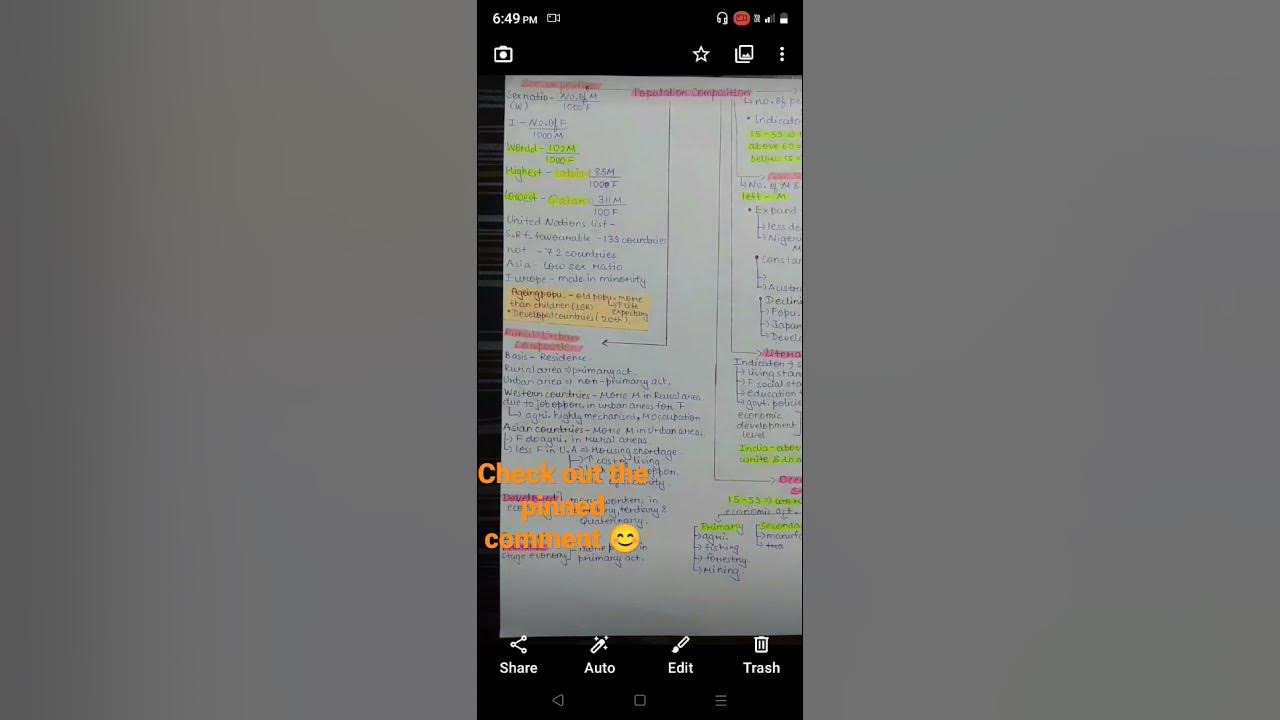 6:49 PM
Sex Composition
Population Composition
Sex ratio - No. of M
(W) 1000 F
I - No. of F
1000 M
World - 102 M
1000 F
Highest - Latvia : 85 M
100 F
Lowest - Qatar : 311 M
100 F
United Nations list -
S.R f. favourable - 139 countries
not - 72 countries
Asia - low sex ratio
Europe - male in minority
Ageing popu. - old popu. more
than children
↑ life
expectancy
* Developed countries (20th).
Rural Urban
Composition
Basis - Residence.
Rural area ⇒ primary act.
Urban area ⇒ non-primary act.
Western countries - More M in Rural area
due to job oppor. in urban areas for F
↳ agri. highly mechanised, M occupation
Asian countries - More M in Urban areas
F do agri. in rural areas.
less F in U.A ⇒ Housing shortage
↑ cost of living
oppor.
Developed
more workers in
tertiary &
Quaternary.
stage economy
more in
primary act.
no. of pe
• Indicato
15-59 ⇒
above 60 =
below 15 =
No. of M &
left - M
• Expand
less de
Niger
• Constan
Austr
Declini
Popu.
Japan
Develo
Litera
Indicator →
living stan
F social sta
education
govt. policie
economic
development
level
India - abov
write & do a
Occ
15-59 ⇒ wor
economic act.
Primary
agri.
fishing
forestry
mining.
Seconda
manufa
Check out the
pinned
comment 😊
Share Auto Edit Trash